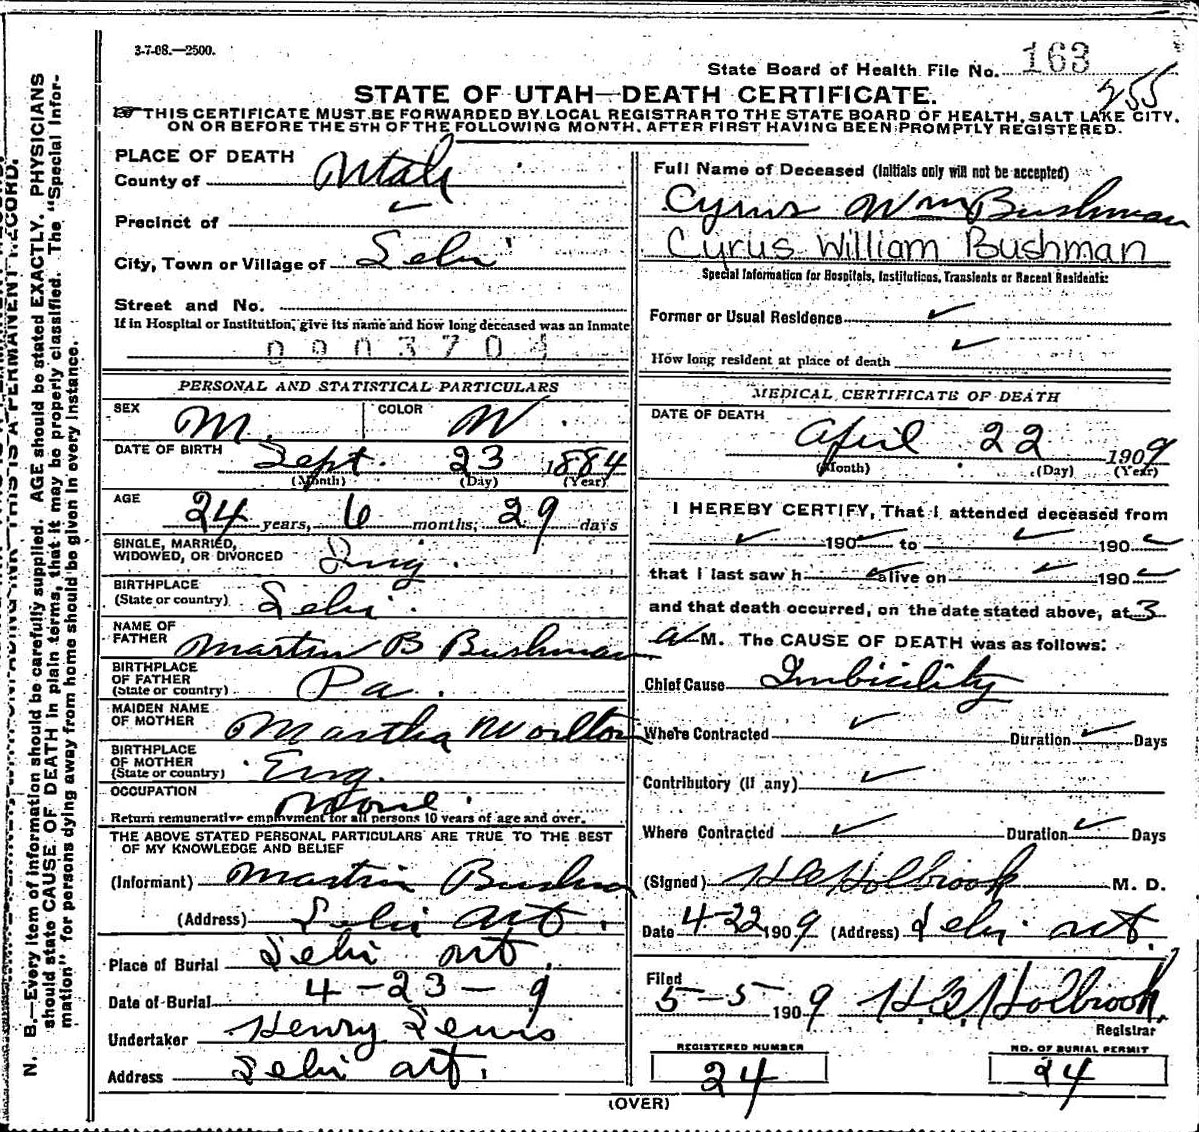 3-7-08.—2500.
State Board of Health File No. 163
255
STATE OF UTAH—DEATH CERTIFICATE.
THIS CERTIFICATE MUST BE FORWARDED BY LOCAL REGISTRAR TO THE STATE BOARD OF HEALTH, SALT LAKE CITY,
ON OR BEFORE THE 5TH OF THE FOLLOWING MONTH, AFTER FIRST HAVING BEEN PROMPTLY REGISTERED.
PLACE OF DEATH
County of Utah
Precinct of
City, Town or Village of Lehi
Street and No.
If in Hospital or Institution, give its name and how long deceased was an Inmate
PERSONAL AND STATISTICAL PARTICULARS
SEX M. COLOR W
DATE OF BIRTH Sept. 23 1884
(Month) (Day) (Year)
AGE 24 years, 6 months, 29 days
SINGLE, MARRIED,
WIDOWED, OR DIVORCED Sing.
BIRTHPLACE
(State or country) Lehi.
NAME OF
FATHER Martin B Bushman
BIRTHPLACE
OF FATHER
(State or country) Pa.
MAIDEN NAME
OF MOTHER Martha Worlton
BIRTHPLACE
OF MOTHER
(State or country) Eng.
OCCUPATION None
Return remunerative employment for all persons 10 years of age and over.
THE ABOVE STATED PERSONAL PARTICULARS ARE TRUE TO THE BEST
OF MY KNOWLEDGE AND BELIEF
(Informant) Martin Bushman
(Address) Lehi Ut.
Place of Burial Lehi Ut.
Date of Burial 4-23-9
Undertaker Henry Lewis
Address Lehi Ut.
Full Name of Deceased (Initials only will not be accepted)
Cyrus Wm Bushman
Cyrus William Bushman
Special Information for Hospitals, Institutions, Transients or Recent Residents:
Former or Usual Residence
How long resident at place of death
MEDICAL CERTIFICATE OF DEATH
DATE OF DEATH
April 22 1909
(Month) (Day) (Year)
I HEREBY CERTIFY, That I attended deceased from
190 to 190
that I last saw h alive on 190
and that death occurred, on the date stated above, at 3
A M. The CAUSE OF DEATH was as follows:
Chief Cause Imbicility
Where Contracted Duration Days
Contributory (if any)
Where Contracted Duration Days
(Signed) H A Holbrook M. D.
Date 4-22 1909 (Address) Lehi Ut.
Filed
5-5 1909 H.A. Holbrook.
Registrar
REGISTERED NUMBER
24
NO. OF BURIAL PERMIT
24
(OVER)
N. B.—Every item of information should be carefully supplied. AGE should be stated EXACTLY. PHYSICIANS
should state CAUSE OF DEATH in plain terms, that it may be properly classified. The "Special Infor-
mation" for persons dying away from home should be given in every instance.